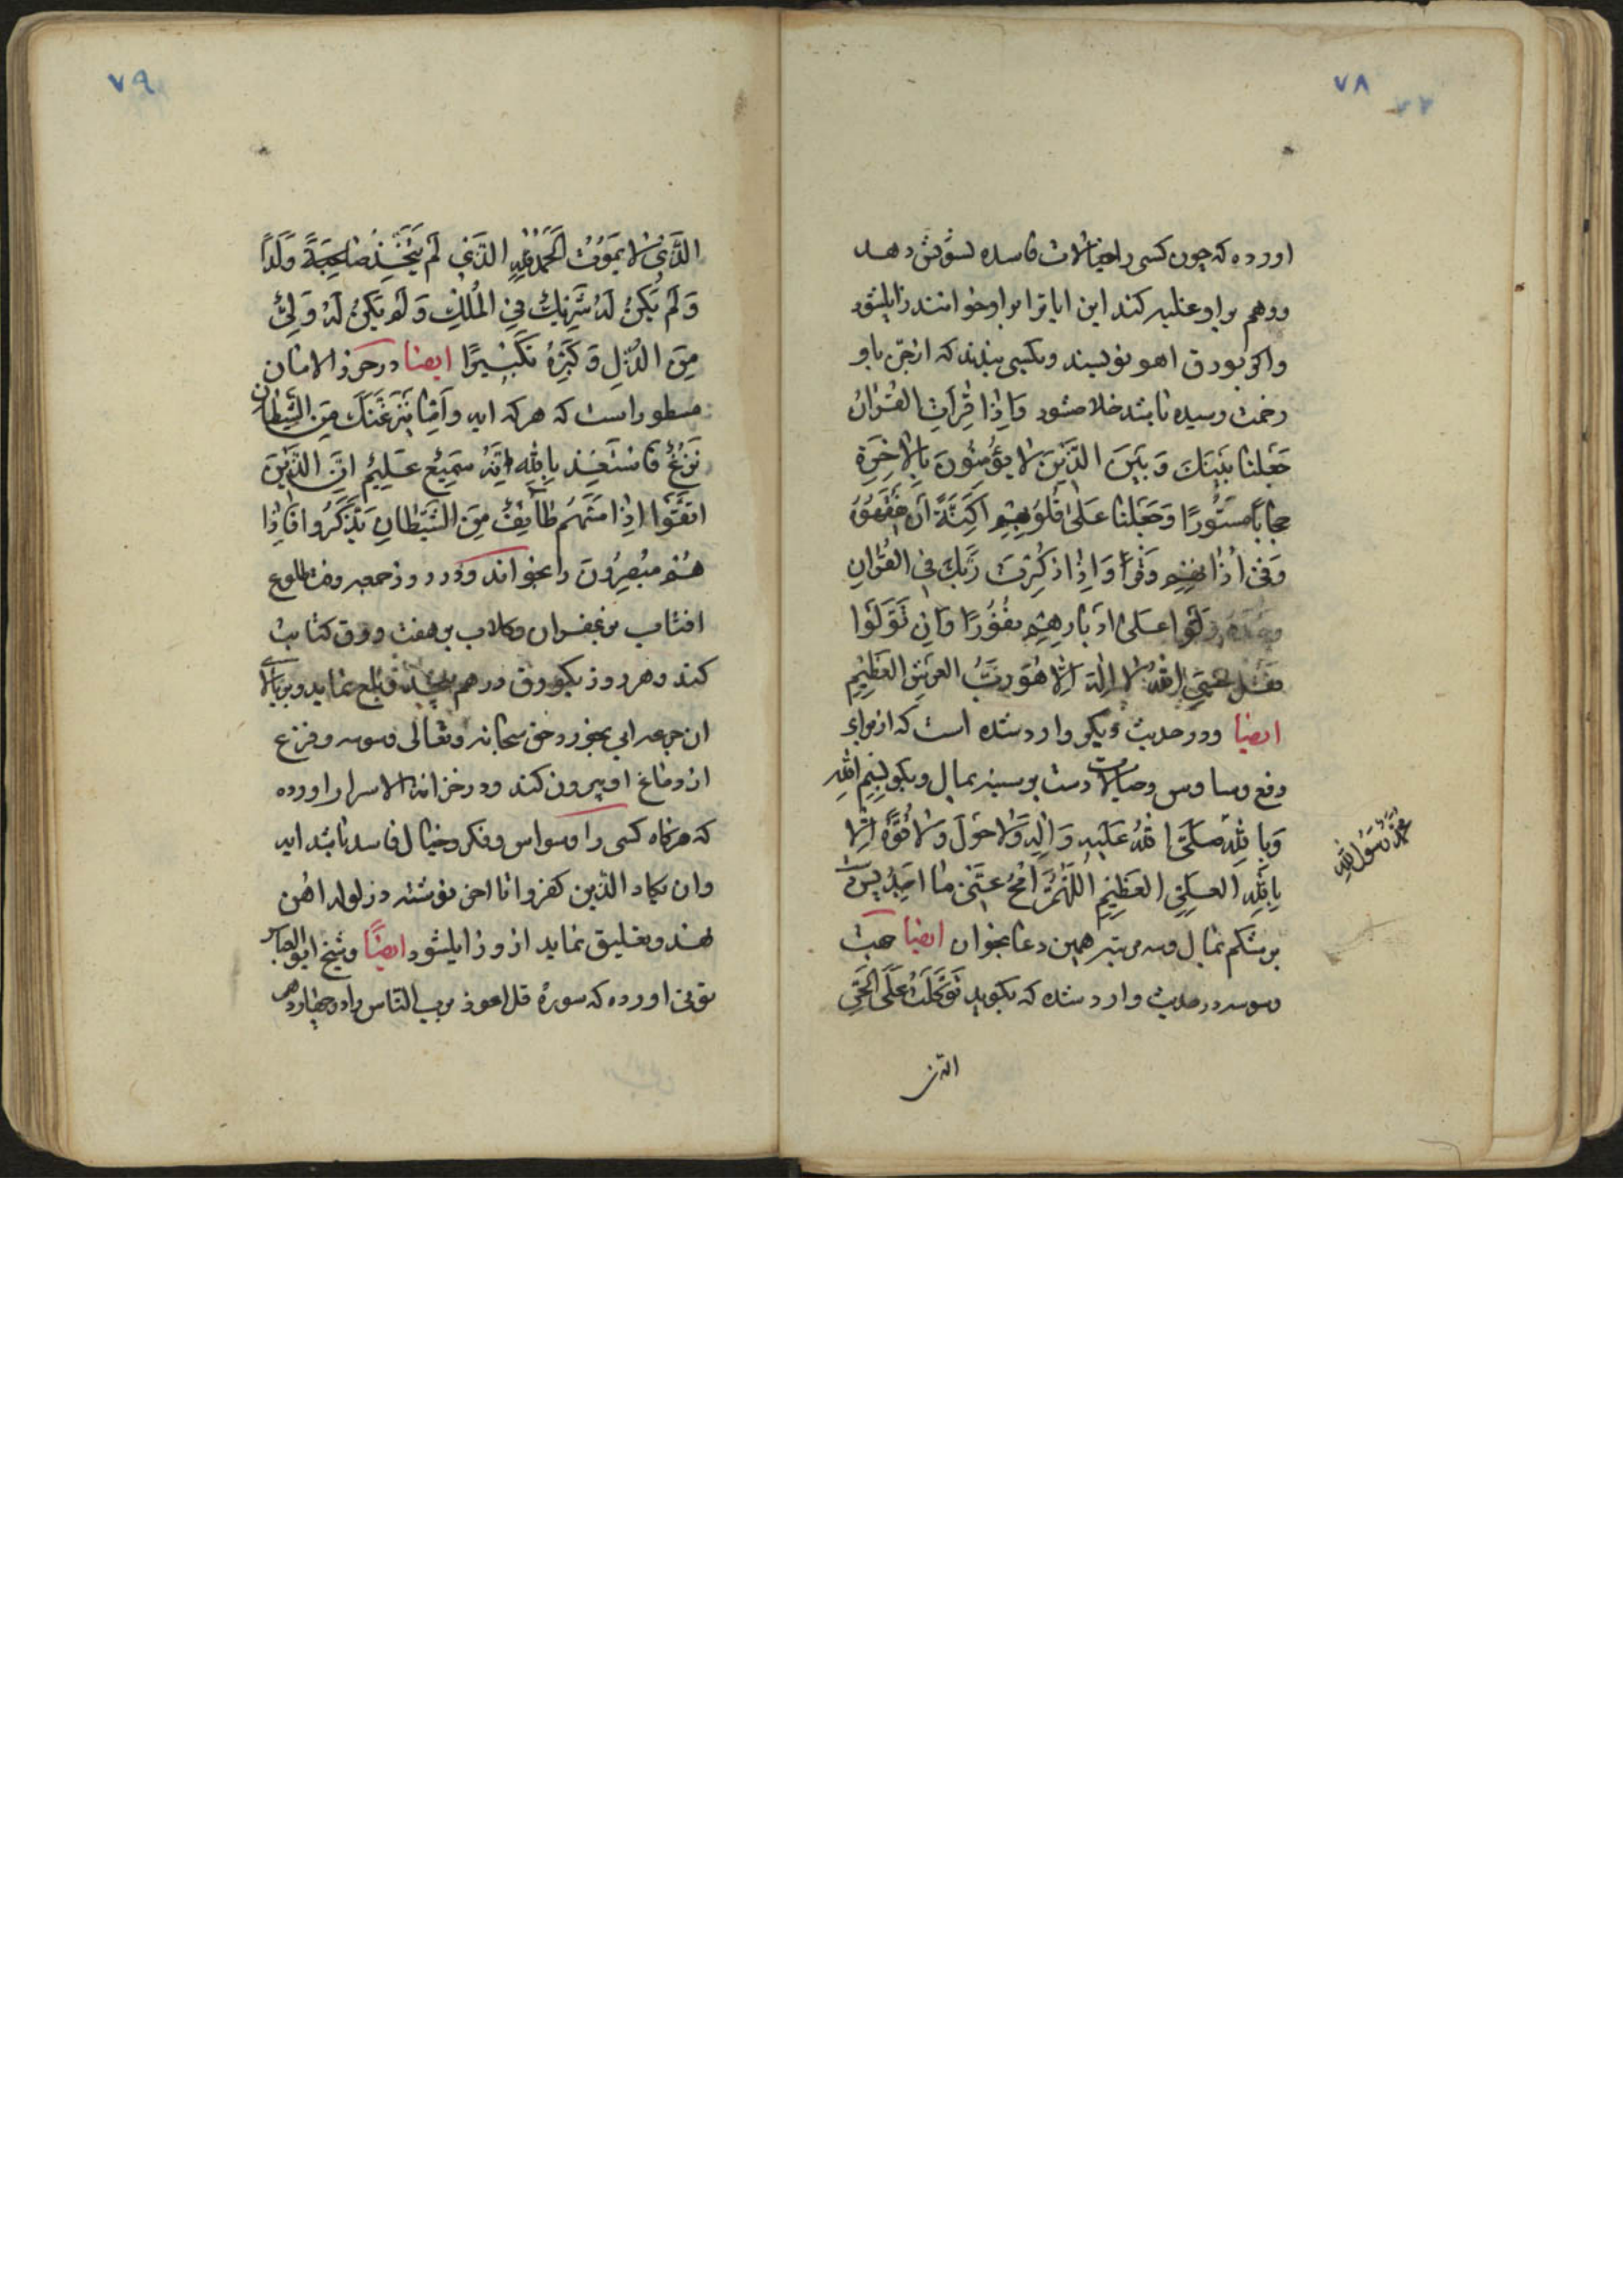 ٧٨
اورده که چون کسی را خیالات فاسده تشویش دهد
ووهم براو غلبه کند این ایاترا براو خوانند زایل شود
واکر بورق اهو نویسند وبکسی بندند که از جن باو
زحمت رسیده باشد خلاص شود وَاِذا قَرَأتَ القُرْانَ
جَعَلْنا بَیْنَكَ وَبَیْنَ الَّذینَ لا یُؤْمِنُونَ بِالاخِرَةِ
حِجاباً مَسْتُورًا وَجَعَلْنا عَلی قُلُوبِهِم اَکِنَّةً اَنْ یَفْقَهُوهُ
وَفی اذانِهِم وَقْراً وَاِذا ذَکَرْتَ رَبَّكَ فی القُرْانِ
وَحْدَهُ وَلَّوْا عَلی اَدْبارِهِم نُفُورًا وَاِن تَوَلَّوْا
فَقُل حَسْبِیَ اللهُ لا اِلهَ اِلّا هُوَ رَبُّ العَرْشِ العَظِیمِ
ایضا ودر حدیث دیکر وارد شده است که از برای
دفع وساوس وخیالات دست بر سینه بمال وبکو بِسْمِ اللهِ
وَبِاللهِ صَلَّی اللهُ عَلَیهِ وَالِهِ وَلا حَوْلَ وَلا قُوَّةَ اِلّا
محمّد رَسُولُ اللهِ
بِاللهِ العَلِیِّ العَظِیمِ اَللّهُمَّ امْحُ عَنّی ما اَجِدُ پس دست
بر شکم بمال وسه مرتبه همین دعا بخوان ایضا جهت
وسوسه در حدیث وارد شده که بکوید تَوَکَّلْتُ عَلَی الحَیِّ
الذی
٧٩
الَّذی لا یَمُوتُ اَلْحَمْدُ لِلّهِ الَّذی لَم یَتَّخِذْ صاحِبَةً وَلَداً
وَلَم یَکُنْ لَهُ شَرِیكٌ فِی المُلْكِ وَلَم یَکُنْ لَهُ وَلِیٌّ
مِنَ الذُّلِّ وَکَبِّرْهُ تَکْبِیرًا ایضا در حرز الامان
مسطور است که هر که ایه واِمّا یَنْزَغَنَّكَ مِنَ الشَّیْطانِ
نَزْغٌ فَاسْتَعِذ بِاللهِ اِنَّهُ سَمِیعٌ عَلِیمٌ اِنَّ الَّذینَ
اتَّقَوْا اِذا مَسَّهُم طائِفٌ مِنَ الشَّیْطانِ تَذَکَّرُوا فَاِذا
هُم مُبْصِرُونَ را بخواند ودر روز جمعه وقت طلوع
افتاب بزعفران وکلاب بر هفت ورق کتابت
کند وهر روز یکورق درهم پیچد وبلع نماید وبر بالای
ان جرعه ابی بخورد حق سبحانه وتعالی وسوسه وفزع
از دماغ او بیرون کند ودر خزانة الاسرار اورده
که هرکاه کسی را وسواس وفکر وخیال فاسد باشد ایه
وان یکاد الذین کفروا تا اخر نوشته در لوله اهن
نهد وتعلیق نماید از و زایل شود ایضًا وشیخ ابو العباس
بونی اورده که سورهٔ قل اعوذ برب الناس را در